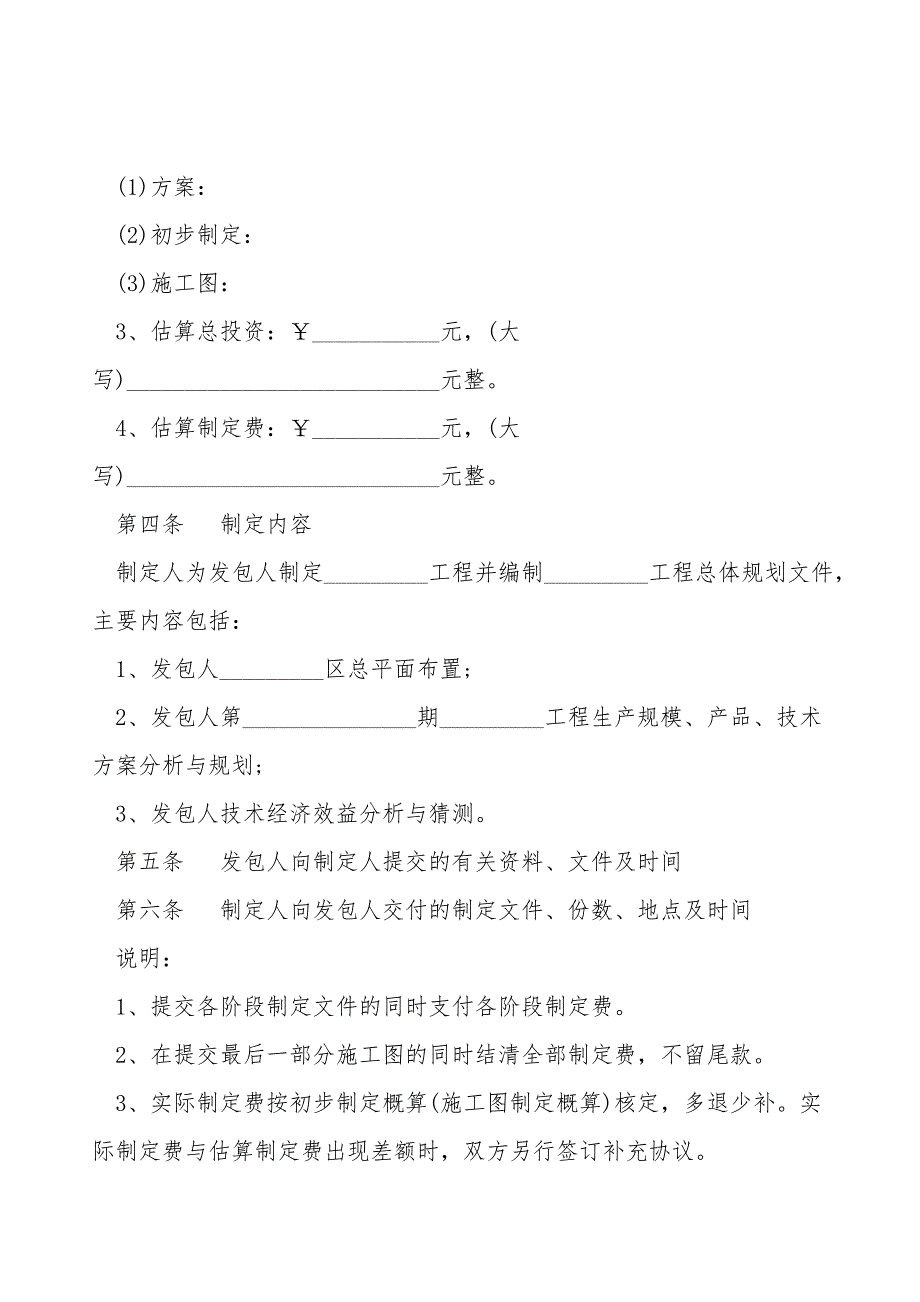 (1)方案：
(2)初步制定：
(3)施工图：
3、估算总投资：￥___________元，(大
写)___________________________元整。
4、估算制定费：￥___________元，(大
写)___________________________元整。
第四条 制定内容
制定人为发包人制定_________工程并编制_________工程总体规划文件，
主要内容包括：
1、发包人_________区总平面布置;
2、发包人第_______________期_________工程生产规模、产品、技术
方案分析与规划;
3、发包人技术经济效益分析与猜测。
第五条 发包人向制定人提交的有关资料、文件及时间
第六条 制定人向发包人交付的制定文件、份数、地点及时间
说明：
1、提交各阶段制定文件的同时支付各阶段制定费。
2、在提交最后一部分施工图的同时结清全部制定费，不留尾款。
3、实际制定费按初步制定概算(施工图制定概算)核定，多退少补。实
际制定费与估算制定费出现差额时，双方另行签订补充协议。